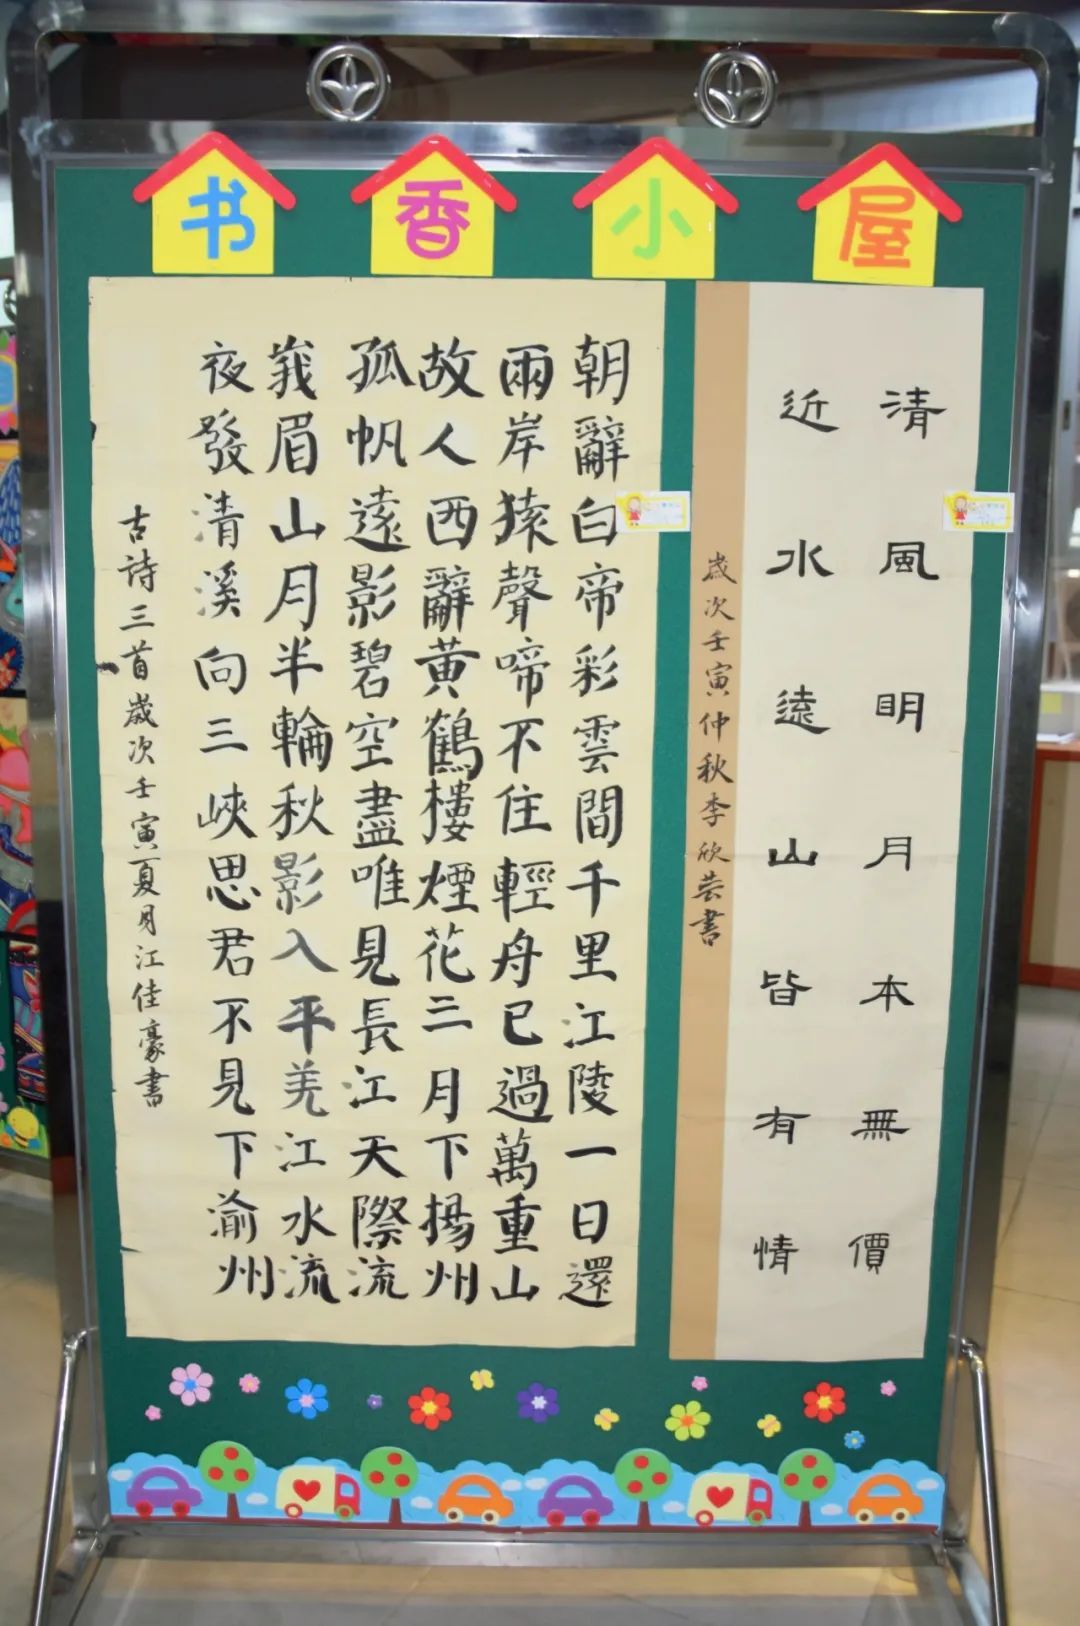 书香小屋
清風明月本無價
近水遠山皆有情
歲次壬寅仲秋李欣芸書
朝辭白帝彩雲間千里江陵一日還
兩岸猿聲啼不住輕舟已過萬重山
故人西辭黃鶴樓煙花三月下揚州
孤帆遠影碧空盡唯見長江天際流
峩眉山月半輪秋影入平羌江水流
夜發清溪向三峽思君不見下渝州
古詩三首歲次壬寅夏月江佳豪書